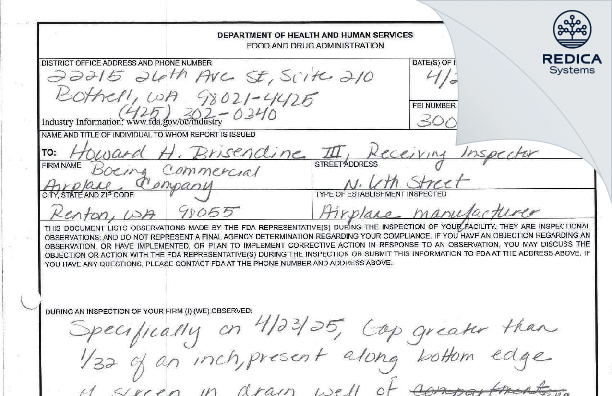 REDICA
Systems
DEPARTMENT OF HEALTH AND HUMAN SERVICES
FOOD AND DRUG ADMINISTRATION
DISTRICT OFFICE ADDRESS AND PHONE NUMBER
DATE(S) OF I
22215 26th Ave SE, Suite 210
4/2
Bothell, WA 98021-4425
(425) 302-0340
Industry Information: www.fda.gov/oc/industry
FEI NUMBER
300
NAME AND TITLE OF INDIVIDUAL TO WHOM REPORT IS ISSUED
TO: Howard H. Brisendine III, Receiving Inspector
FIRM NAME
STREET ADDRESS
Boeing Commercial
Airplane Company
N. 6th Street
CITY, STATE AND ZIP CODE
TYPE OF ESTABLISHMENT INSPECTED
Renton, WA 98055
Airplane manufacturer
THIS DOCUMENT LISTS OBSERVATIONS MADE BY THE FDA REPRESENTATIVE(S) DURING THE INSPECTION OF YOUR FACILITY. THEY ARE INSPECTIONAL
OBSERVATIONS; AND DO NOT REPRESENT A FINAL AGENCY DETERMINATION REGARDING YOUR COMPLIANCE. IF YOU HAVE AN OBJECTION REGARDING AN
OBSERVATION, OR HAVE IMPLEMENTED, OR PLAN TO IMPLEMENT CORRECTIVE ACTION IN RESPONSE TO AN OBSERVATION, YOU MAY DISCUSS THE
OBJECTION OR ACTION WITH THE FDA REPRESENTATIVE(S) DURING THE INSPECTION OR SUBMIT THIS INFORMATION TO FDA AT THE ADDRESS ABOVE. IF
YOU HAVE ANY QUESTIONS, PLEASE CONTACT FDA AT THE PHONE NUMBER AND ADDRESS ABOVE.
DURING AN INSPECTION OF YOUR FIRM (I) (WE) OBSERVED:
Specifically on 4/23/25, Gap greater than
1/32 of an inch, present along bottom edge
of screen in drain well of compartment